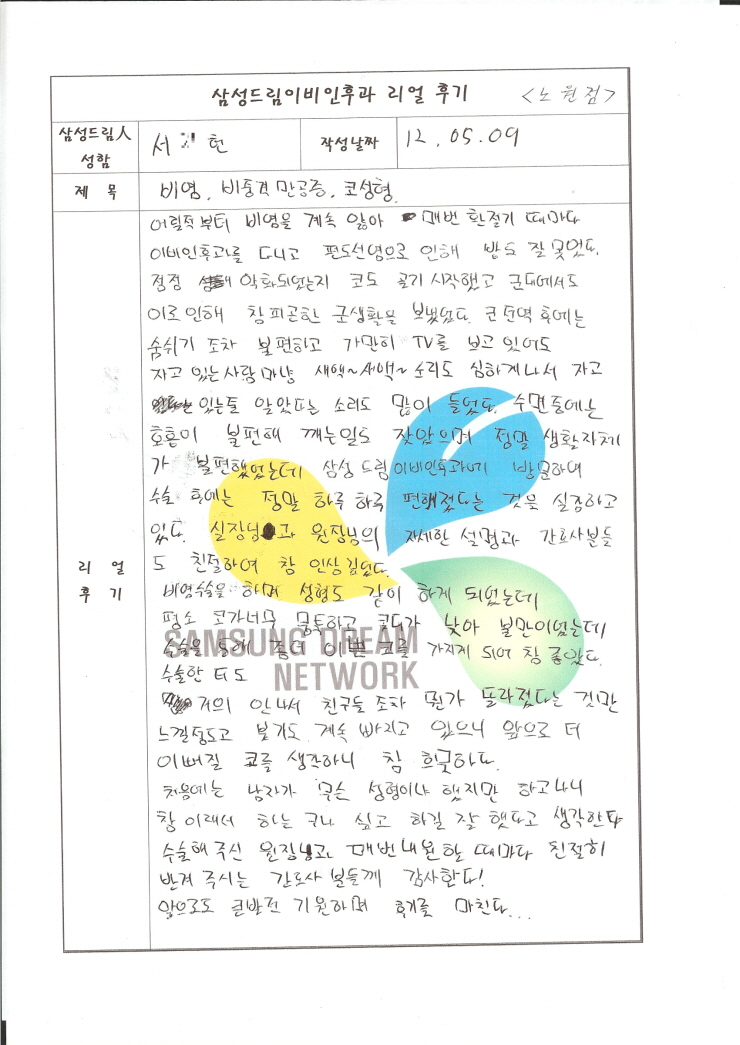 삼성드림이비인후과 리얼 후기 <노원점>
삼성드림人 성함 서 헌 작성날짜 12. 05. 09
제 목 비염, 비중격 만곡증, 코성형.
리 얼 후 기
어릴적부터 비염을 계속 앓아 매번 환절기 때마다
이비인후과를 다니고 편도선염으로 인해 밥도 잘 못먹었다.
점점 악화되었는지 코도 골기 시작했고 군대에서도
이로 인해 참 피곤한 군생활을 보냈었다. 군 전역 후에는
숨쉬기 조차 불편하고 가만히 TV를 보고 있어도
자고 있는 사람 마냥 새액~새액~ 소리도 심하게 나서 자고
있는줄 알았다는 소리도 많이 들었다. 수면중에는
호흡이 불편해 깨는일도 잦았으며 정말 생활자체
가 불편했었는데 삼성 드림이비인후과에 방문하여
수술 후에는 정말 하루 하루 편해졌다는 것을 실감하고
있다. 실장님과 원장님의 자세한 설명과 간호사분들
도 친절하여 참 인상깊었다.
비염수술을 하며 성형도 같이 하게 되었는데
평소 코가너무 뭉툭하고 콧대가 낮아 불만이었는데
수술을 통해 좀더 이쁜 코를 가지게 되어 참 좋았다.
수술한 티도
거의 안나서 친구들 조차 뭔가 달라졌다는 것만
느낄정도고 붓기도 계속 빠지고 있으니 앞으로 더
이뻐질 코를 생각하니 참 흐뭇하다.
처음에는 남자가 무슨 성형이냐 했지만 하고나니
참 이래서 하는 구나 싶고 하길 잘 했다고 생각한다
수술해 주신 원장님과 매번 내원할 때마다 친절히
반겨 주시는 간호사 분들께 감사한다!
앞으로도 큰발전 기원하며 후기를 마친다...
SAMSUNG DREAM
NETWORK